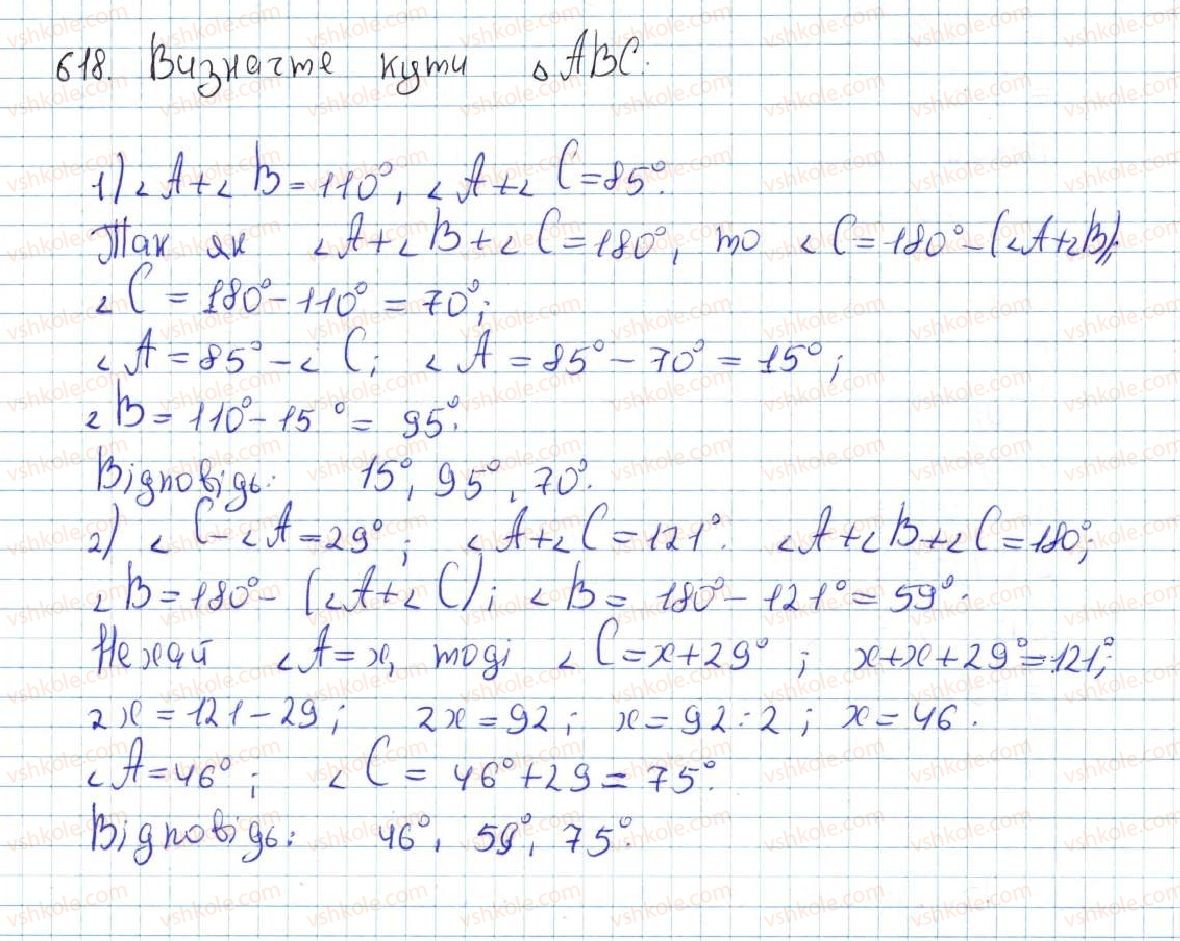 618. Визначте кути △ABC.
1) ∠A+∠B=110°, ∠A+∠C=85°.
Так як ∠A+∠B+∠C=180°, то ∠C=180°-(∠A+∠B);
∠C=180°-110°=70°;
∠A=85°-∠C; ∠A=85°-70°=15°;
∠B=110°-15°=95°.
Відповідь: 15°, 95°, 70°.
2) ∠C-∠A=29°; ∠A+∠C=121°. ∠A+∠B+∠C=180°;
∠B=180°-(∠A+∠C); ∠B=180°-121°=59°.
Нехай ∠A=x, тоді ∠C=x+29°; x+x+29°=121°;
2x=121-29; 2x=92; x=92:2; x=46.
∠A=46°; ∠C=46°+29=75°.
Відповідь: 46°, 59°, 75°.